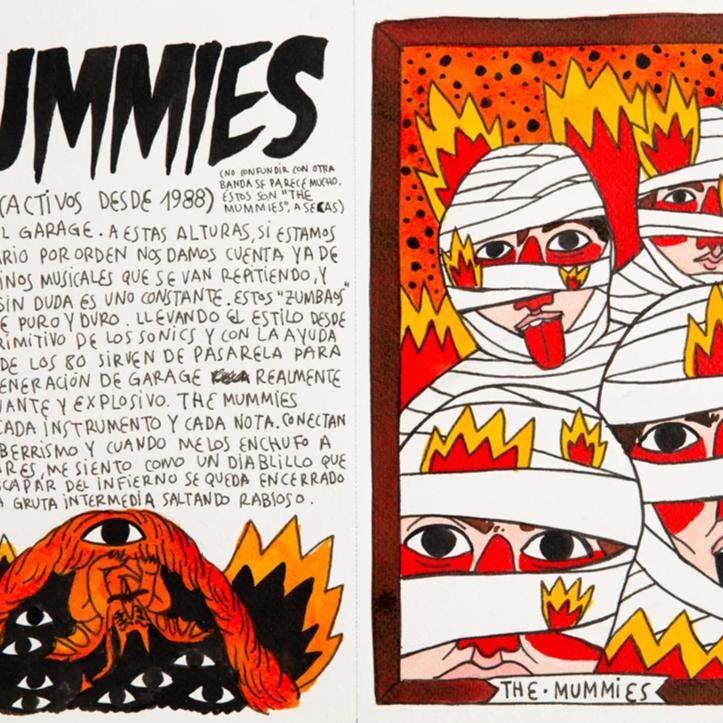 UMMIES
(ACTIVOS DESDE 1988)
(NO CONFUNDIR CON OTRA
BANDA SE PARECE MUCHO.
ESTOS SON "THE
MUMMIES", A SECAS)
L GARAGE. A ESTAS ALTURAS, SI ESTAMOS
ARIO POR ORDEN NOS DAMOS CUENTA YA DE
INOS MUSICALES QUE SE VAN REPITIENDO, Y
SIN DUDA ES UNO CONSTANTE. ESTOS "ZUMBAOS"
E PURO Y DURO. LLEVANDO EL ESTILO DESDE
RIMITIVO DE LOS SONICS Y CON LA AYUDA
DE LOS 80 SIRVEN DE PASARELA PARA
ENERACIÓN DE GARAGE REALMENTE
VANTE Y EXPLOSIVO. THE MUMMIES
CADA INSTRUMENTO Y CADA NOTA. CONECTAN
BERRISMO Y CUANDO ME LOS ENCHUFO A
RES, ME SIENTO COMO UN DIABLILLO QUE
SCAPAR DEL INFIERNO SE QUEDA ENCERRADO
A GRUTA INTERMEDIA SALTANDO RABIOSO.
THE·MUMMIES